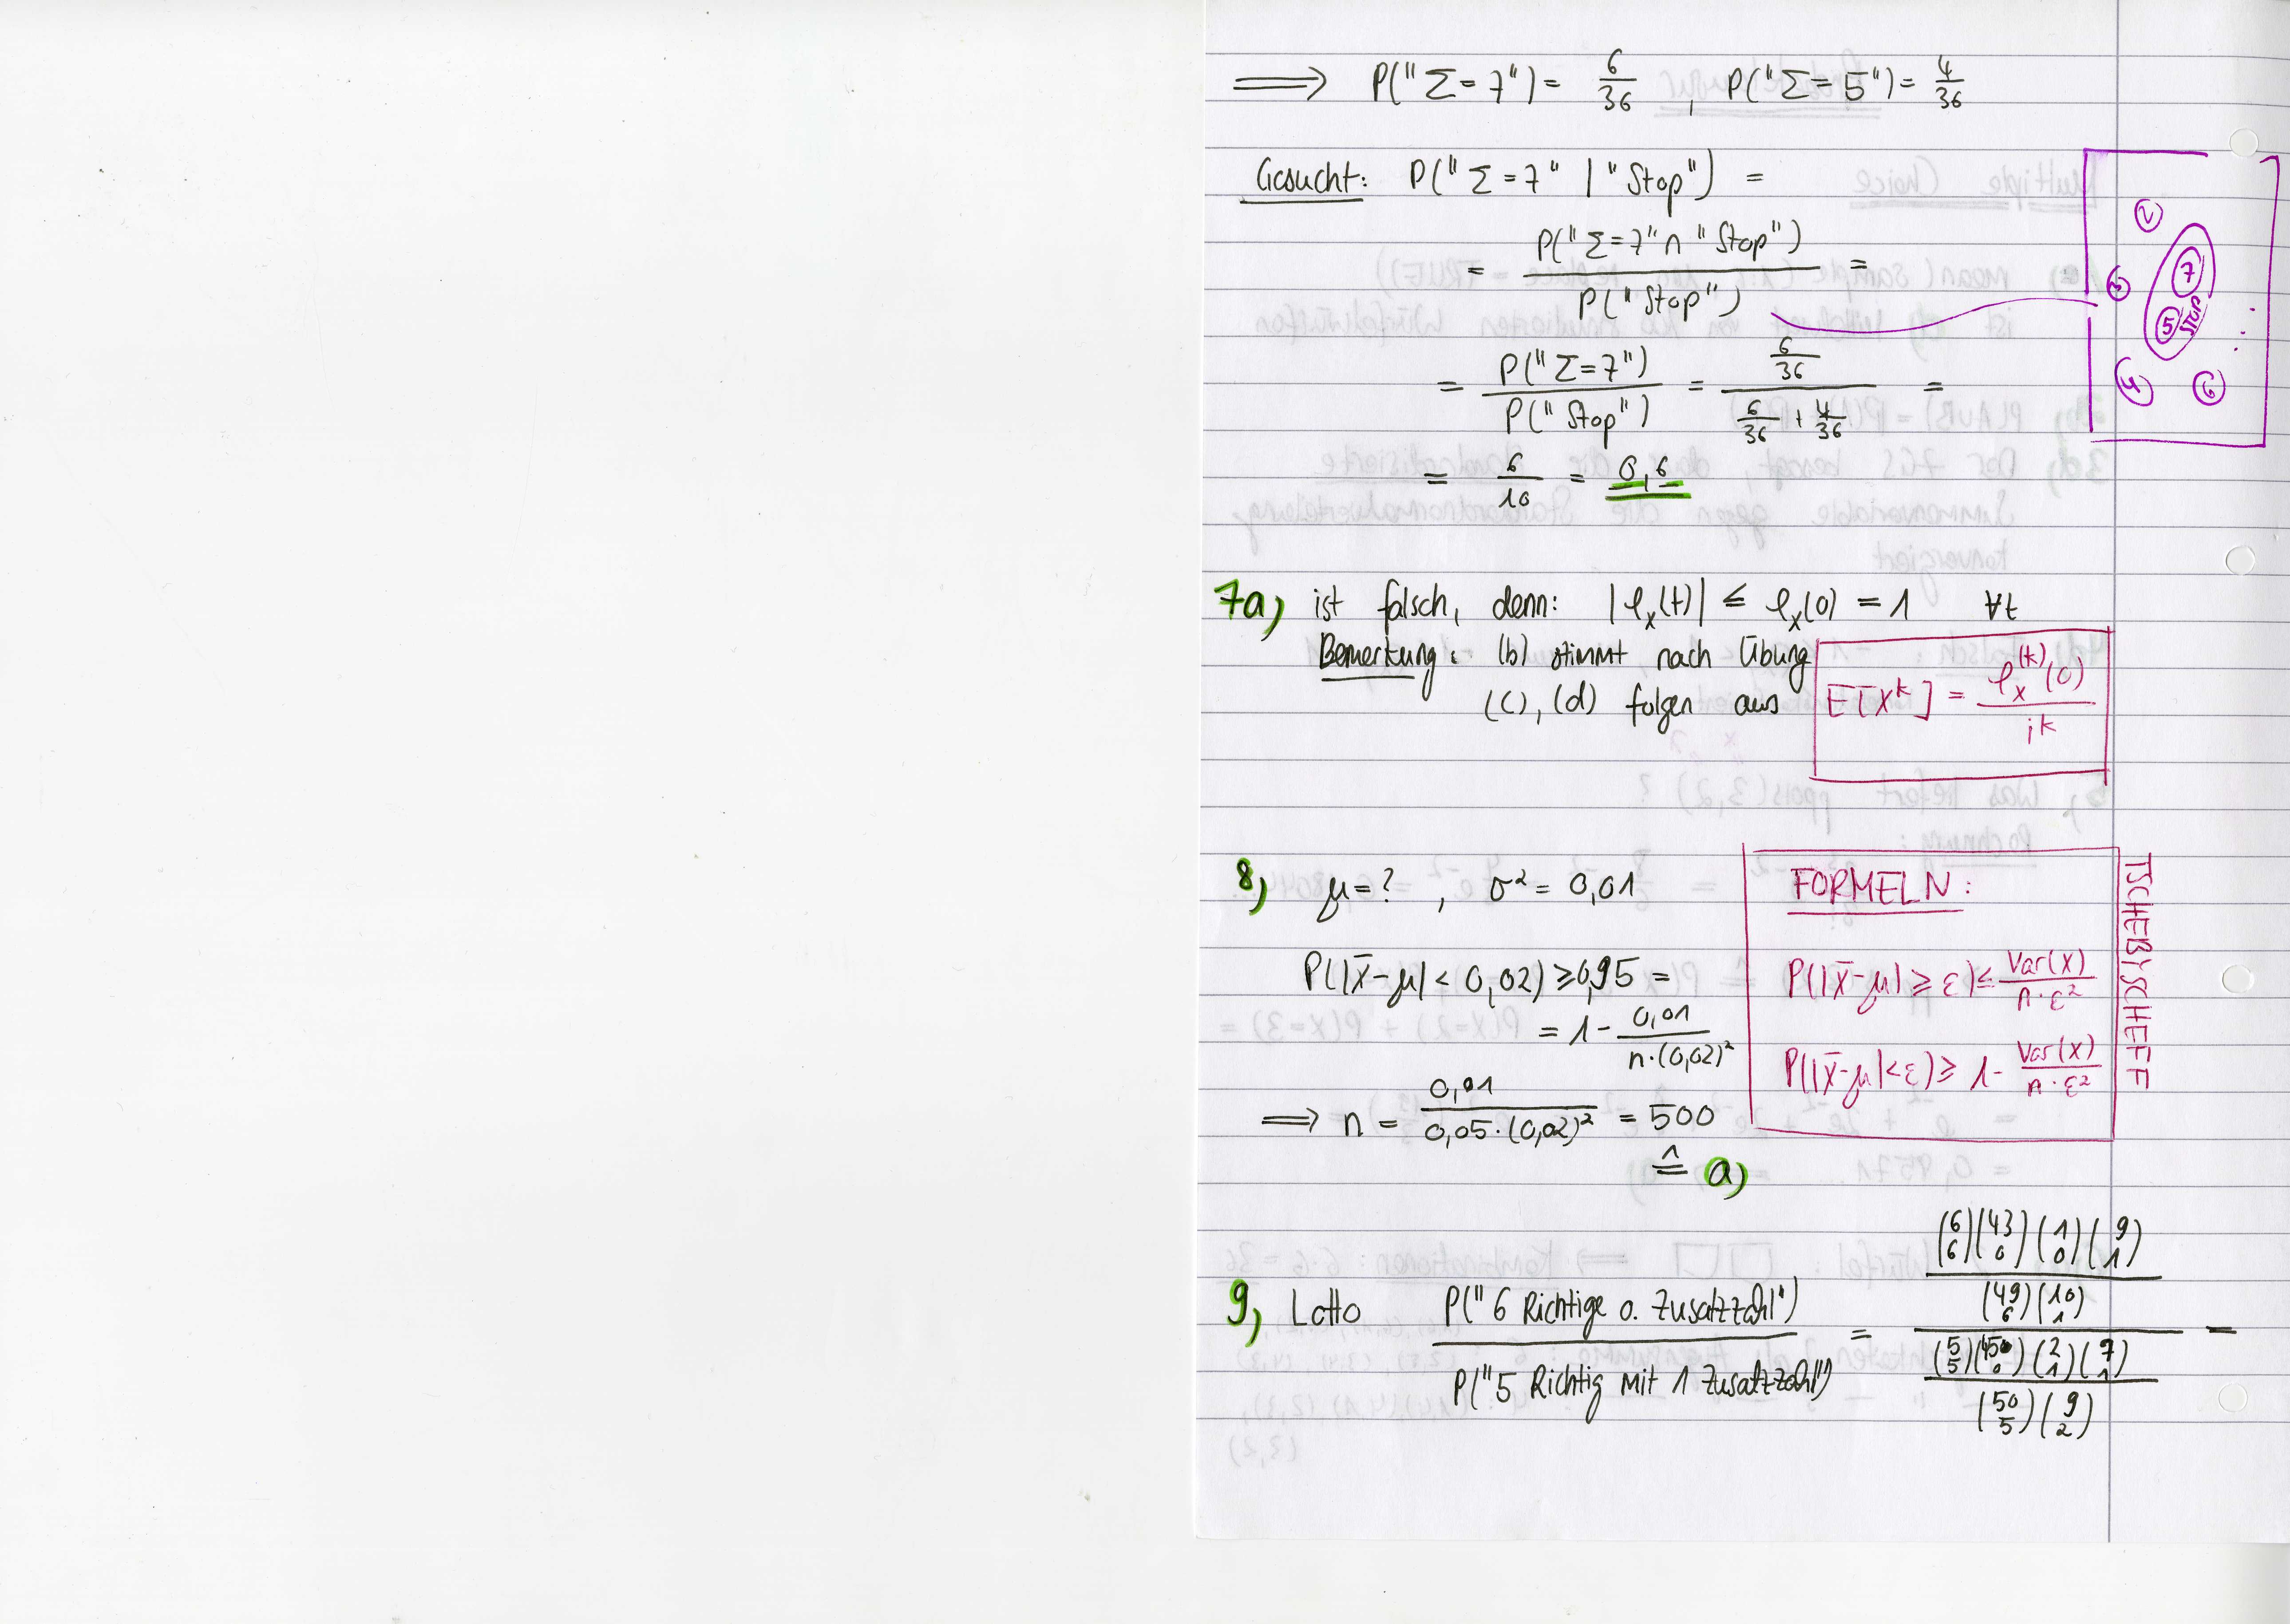 ⟹ P("Σ=7") = 6/36 , P("Σ=5") = 4/36
Gesucht: P("Σ=7" | "Stop") =
= P("Σ=7" ∩ "Stop") / P("Stop") =
= P("Σ=7") / P("Stop") = (6/36) / (6/36 + 4/36) =
= 6/10 = 0,6
2
3
7
5
STOP
4
6
7a) ist falsch, denn: |φ_x(t)| ≤ φ_x(0) = 1 ∀t
Bemerkung: (b) stimmt nach Übung
(c), (d) folgen aus
E[X^k] = φ_x^(k)(0) / i^k
8) μ = ? , σ² = 0,01
P(|x̄-μ| < 0,02) ≥ 0,95 =
= 1 - 0,01 / (n·(0,02)²)
⟹ n = 0,01 / (0,05·(0,02)²) = 500
≙ a)
FORMELN:
P(|x̄-μ| ≥ ε) ≤ Var(X) / (n·ε²)
P(|x̄-μ| < ε) ≥ 1 - Var(X) / (n·ε²)
TSCHEBYSCHEFF
9) Lotto P("6 Richtige o. Zusatzzahl") / P("5 Richtig mit 1 Zusatzzahl") = [(6 6)(43 0)(1 0)(9 1) / (49 6)(10 1)] / [(5 5)(45 0)(2 1)(7 1) / (50 5)(9 2)] =